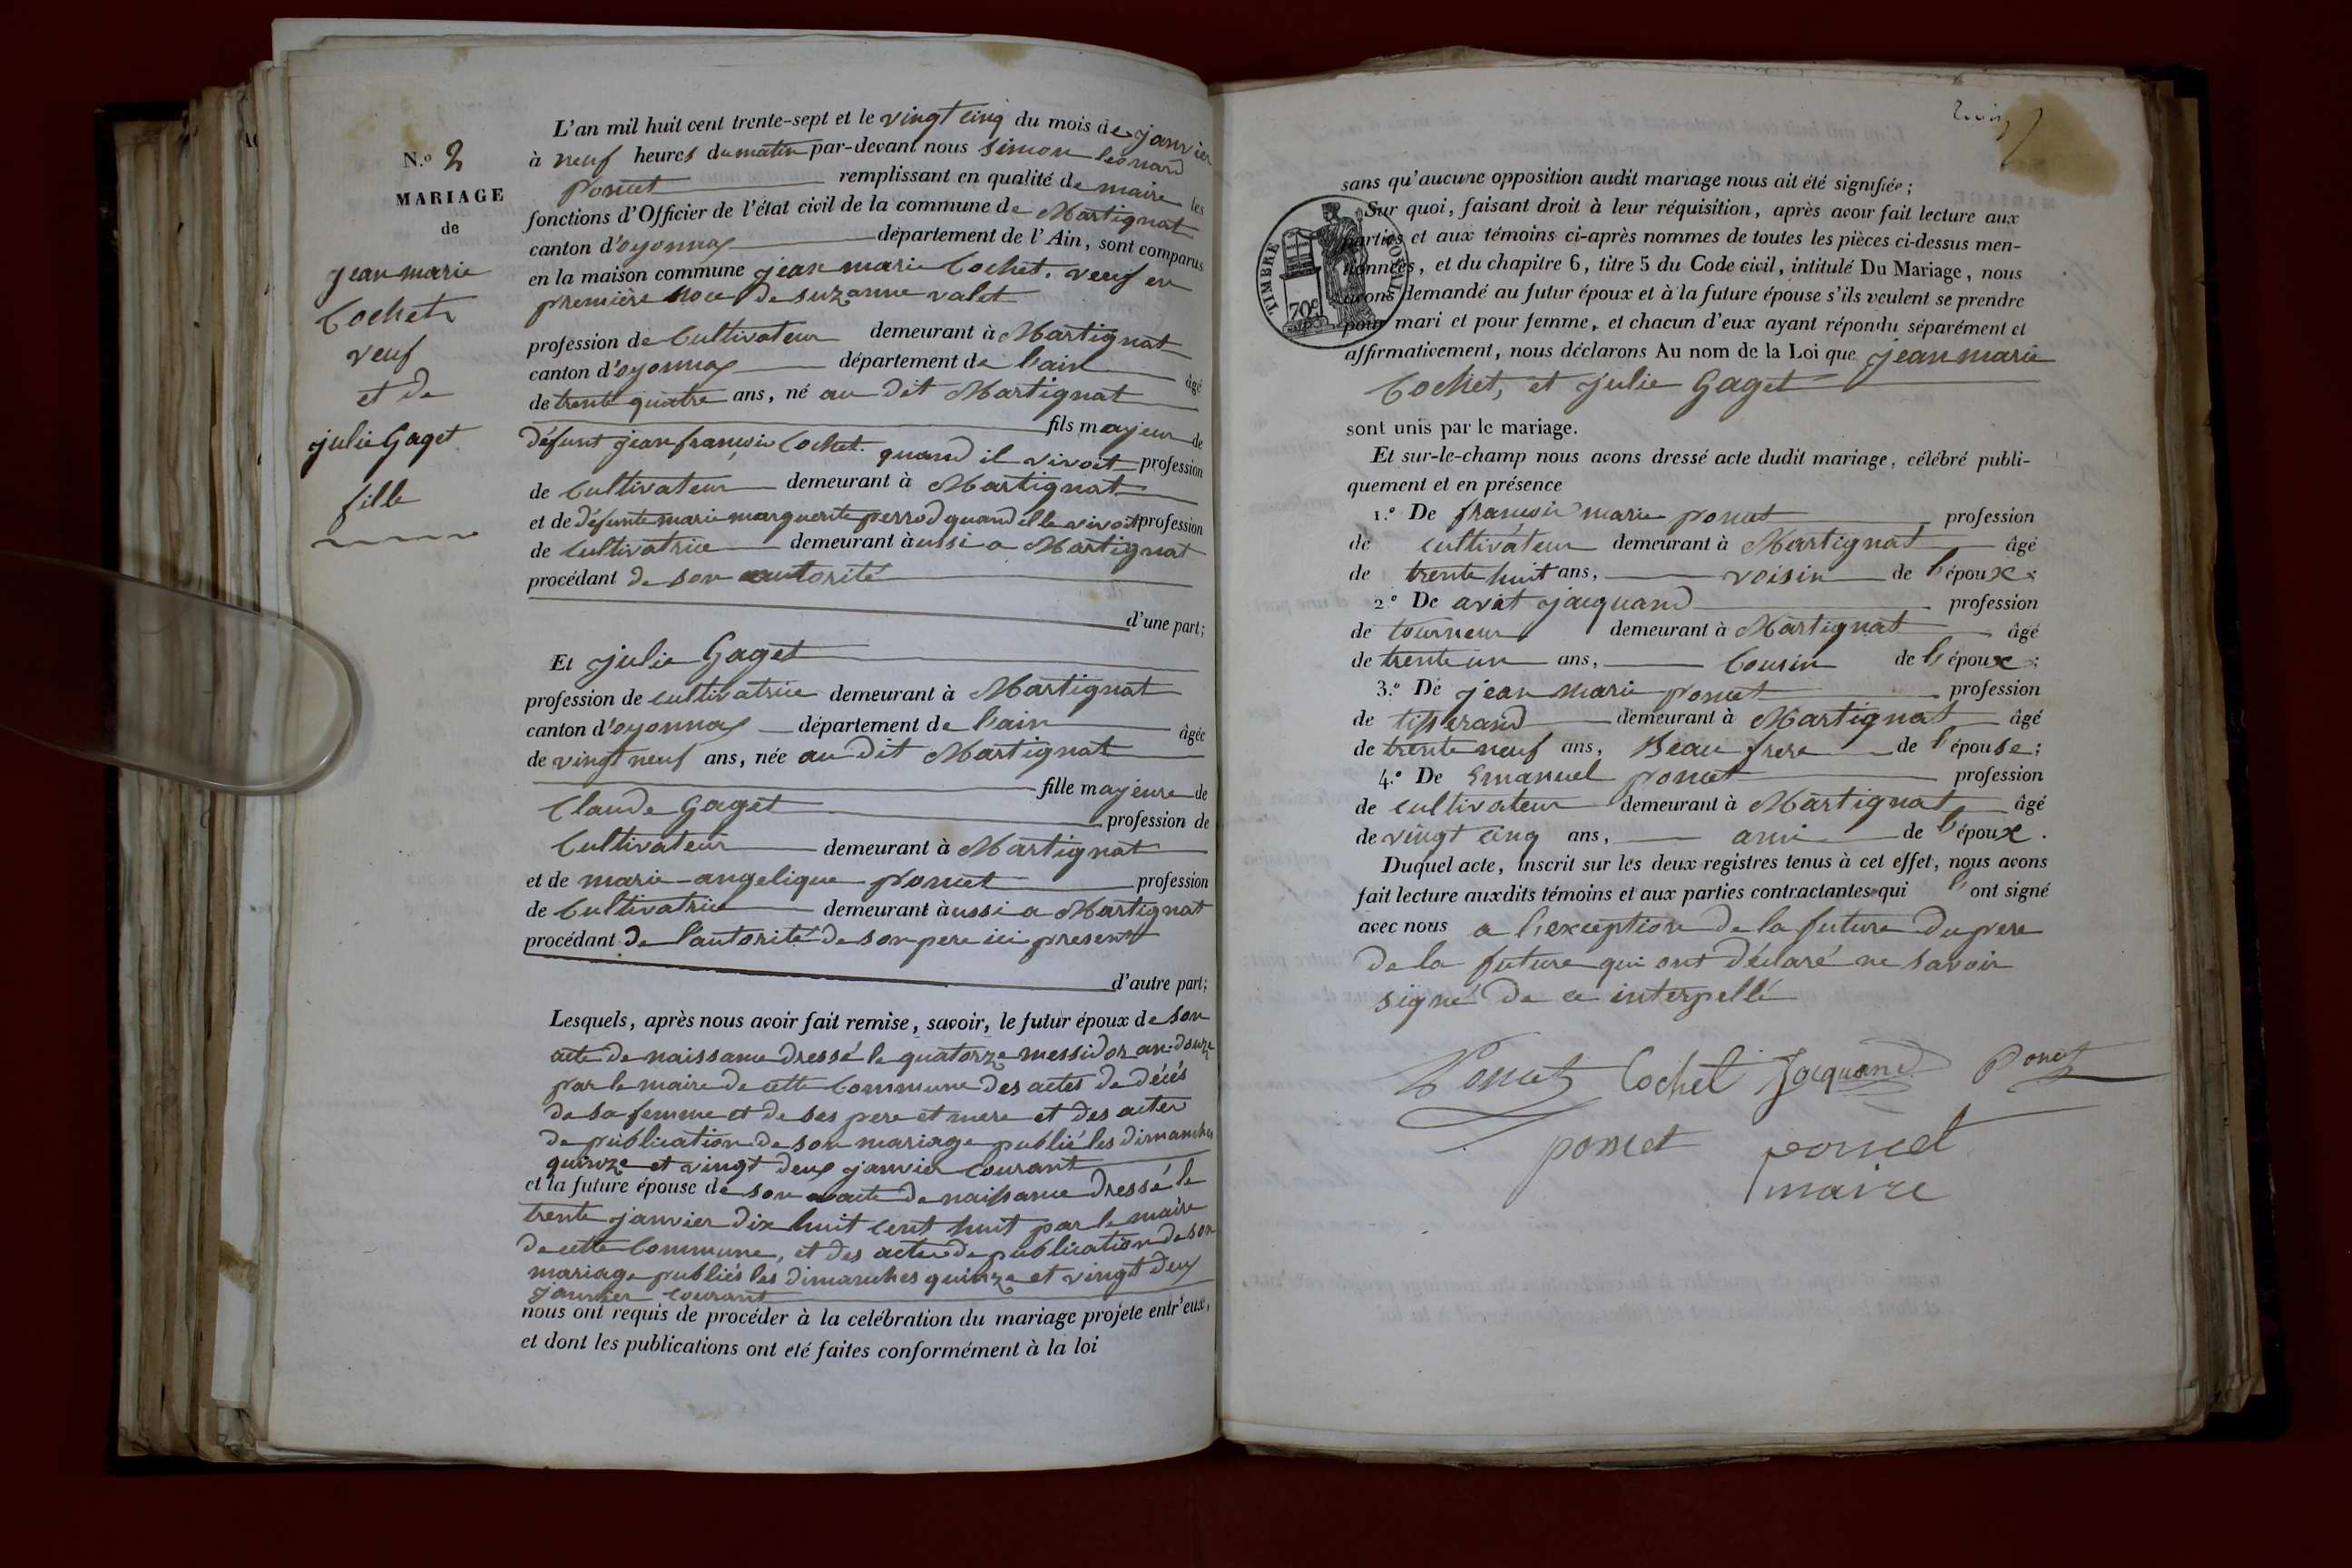 N.º 2
MARIAGE
de
jean marie
Cochet
veuf
et de
julie Gaget
fille
L'an mil huit cent trente-sept et le vingt cinq du mois de janvier
à neuf heures du matin par-devant nous simon léonard
poncet remplissant en qualité de maire les
fonctions d'Officier de l'état civil de la commune de Martignat
canton d'oyonnax département de l'Ain, sont comparus
en la maison commune jean marie Cochet, veuf en
première noce de suzanne valet
profession de Cultivateur demeurant à Martignat
canton d'oyonnax département de l'ain âgé
de trente quatre ans, né au dit Martignat
fils majeur de
défunt jean françois Cochet. quand il vivoit profession
de Cultivateur demeurant à Martignat
et de défunte marie marguerite perrod quand elle vivoit profession
de Cultivatrice demeurant à aussi a Martignat
procédant de son autorité
d'une part;
Et julie Gaget
profession de cultivatrice demeurant à Martignat
canton d'oyonnax département de l'ain âgée
de vingt neuf ans, née au dit Martignat
fille majeure de
Claude Gaget profession de
Cultivateur demeurant à Martignat
et de marie-angelique poncet profession
de Cultivatrice demeurant à aussi a Martignat
procédant de l'autorité de son pere ici present
d'autre part;
Lesquels, après nous avoir fait remise, savoir, le futur époux de son
acte de naissance dressé le quatorze messidor an douze
par le maire de cette Commune des actes de décés
de sa femme et de ses pere et mere et des actes
de publication de son mariage publié les dimanches
quinze et vingt deux janvier courant
et la future épouse de son acte de naissance dressé le
trente janvier dix huit cent huit par le maire
de cette Commune, et des actes de publication de son
mariage publiés les dimanches quinze et vingt deux
janvier courant
nous ont requis de procéder à la celébration du mariage projete entr'eux,
et dont les publications ont eté faites conformément à la loi
sans qu'aucune opposition audit mariage nous ait été signifiée;
Sur quoi, faisant droit à leur réquisition, après avoir fait lecture aux
parties et aux témoins ci-après nommes de toutes les pièces ci-dessus men-
tionnées, et du chapitre 6, titre 5 du Code civil, intitulé Du Mariage, nous
avons demandé au futur époux et à la future épouse s'ils veulent se prendre
pour mari et pour femme, et chacun d'eux ayant répondu séparément et
affirmativement, nous déclarons Au nom de la Loi que jean marie
Cochet, et julie Gaget
TIMBRE ROYAL
70c
sont unis par le mariage.
Et sur-le-champ nous avons dressé acte dudit mariage, célébré publi-
quement et en présence
1.º De françois marie poncet profession
de cultivateur demeurant à Martignat âgé
de trente huit ans, voisin de l'époux;
2.º De avit jacquand profession
de tourneur demeurant à Martignat âgé
de trente un ans, Cousin de l'époux;
3.º De jean marie poncet profession
de tisserand demeurant à Martignat âgé
de trente neuf ans, Beau frere de l'épouse;
4.º De Emanuel poncet profession
de cultivateur demeurant à Martignat âgé
de vingt cinq ans, ami de l'époux.
Duquel acte, inscrit sur les deux registres tenus à cet effet, nous avons
fait lecture auxdits témoins et aux parties contractantes qui l'ont signé
avec nous a l'exception de la future du pere
de la future qui ont déclaré ne savoir
signé de ce interpellé
Poncet Cochet Jacquand Poncet
poncet poncet
maire